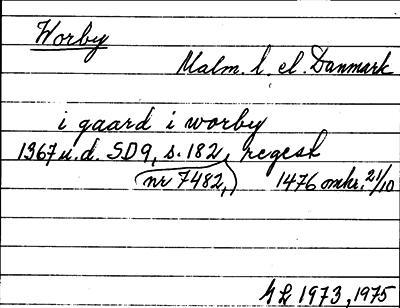 Worby
Malm. l. el. Danmark
i gaard i worby
1367 u.d. SD9, s. 182, regest
(nr 7482,) 1476 omkr. 21/10
1973, 1975